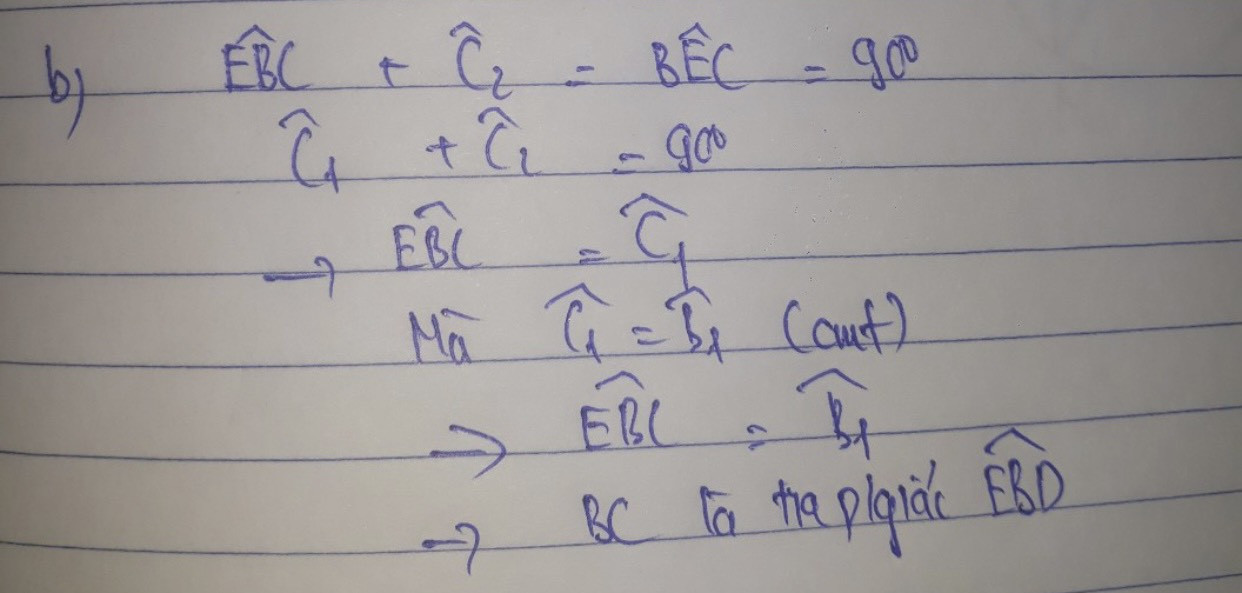 b) \widehat{EBC} + \widehat{C}_2 = B\widehat{E}C = 90°
\widehat{C}_1 + \widehat{C}_2 = 90°
→ \widehat{EBC} = \widehat{C}_1
Mà \widehat{C}_1 = \widehat{B}_1 (cmt)
→ \widehat{EBC} = \widehat{B}_1
→ BC là tia p/giác \widehat{EBD}